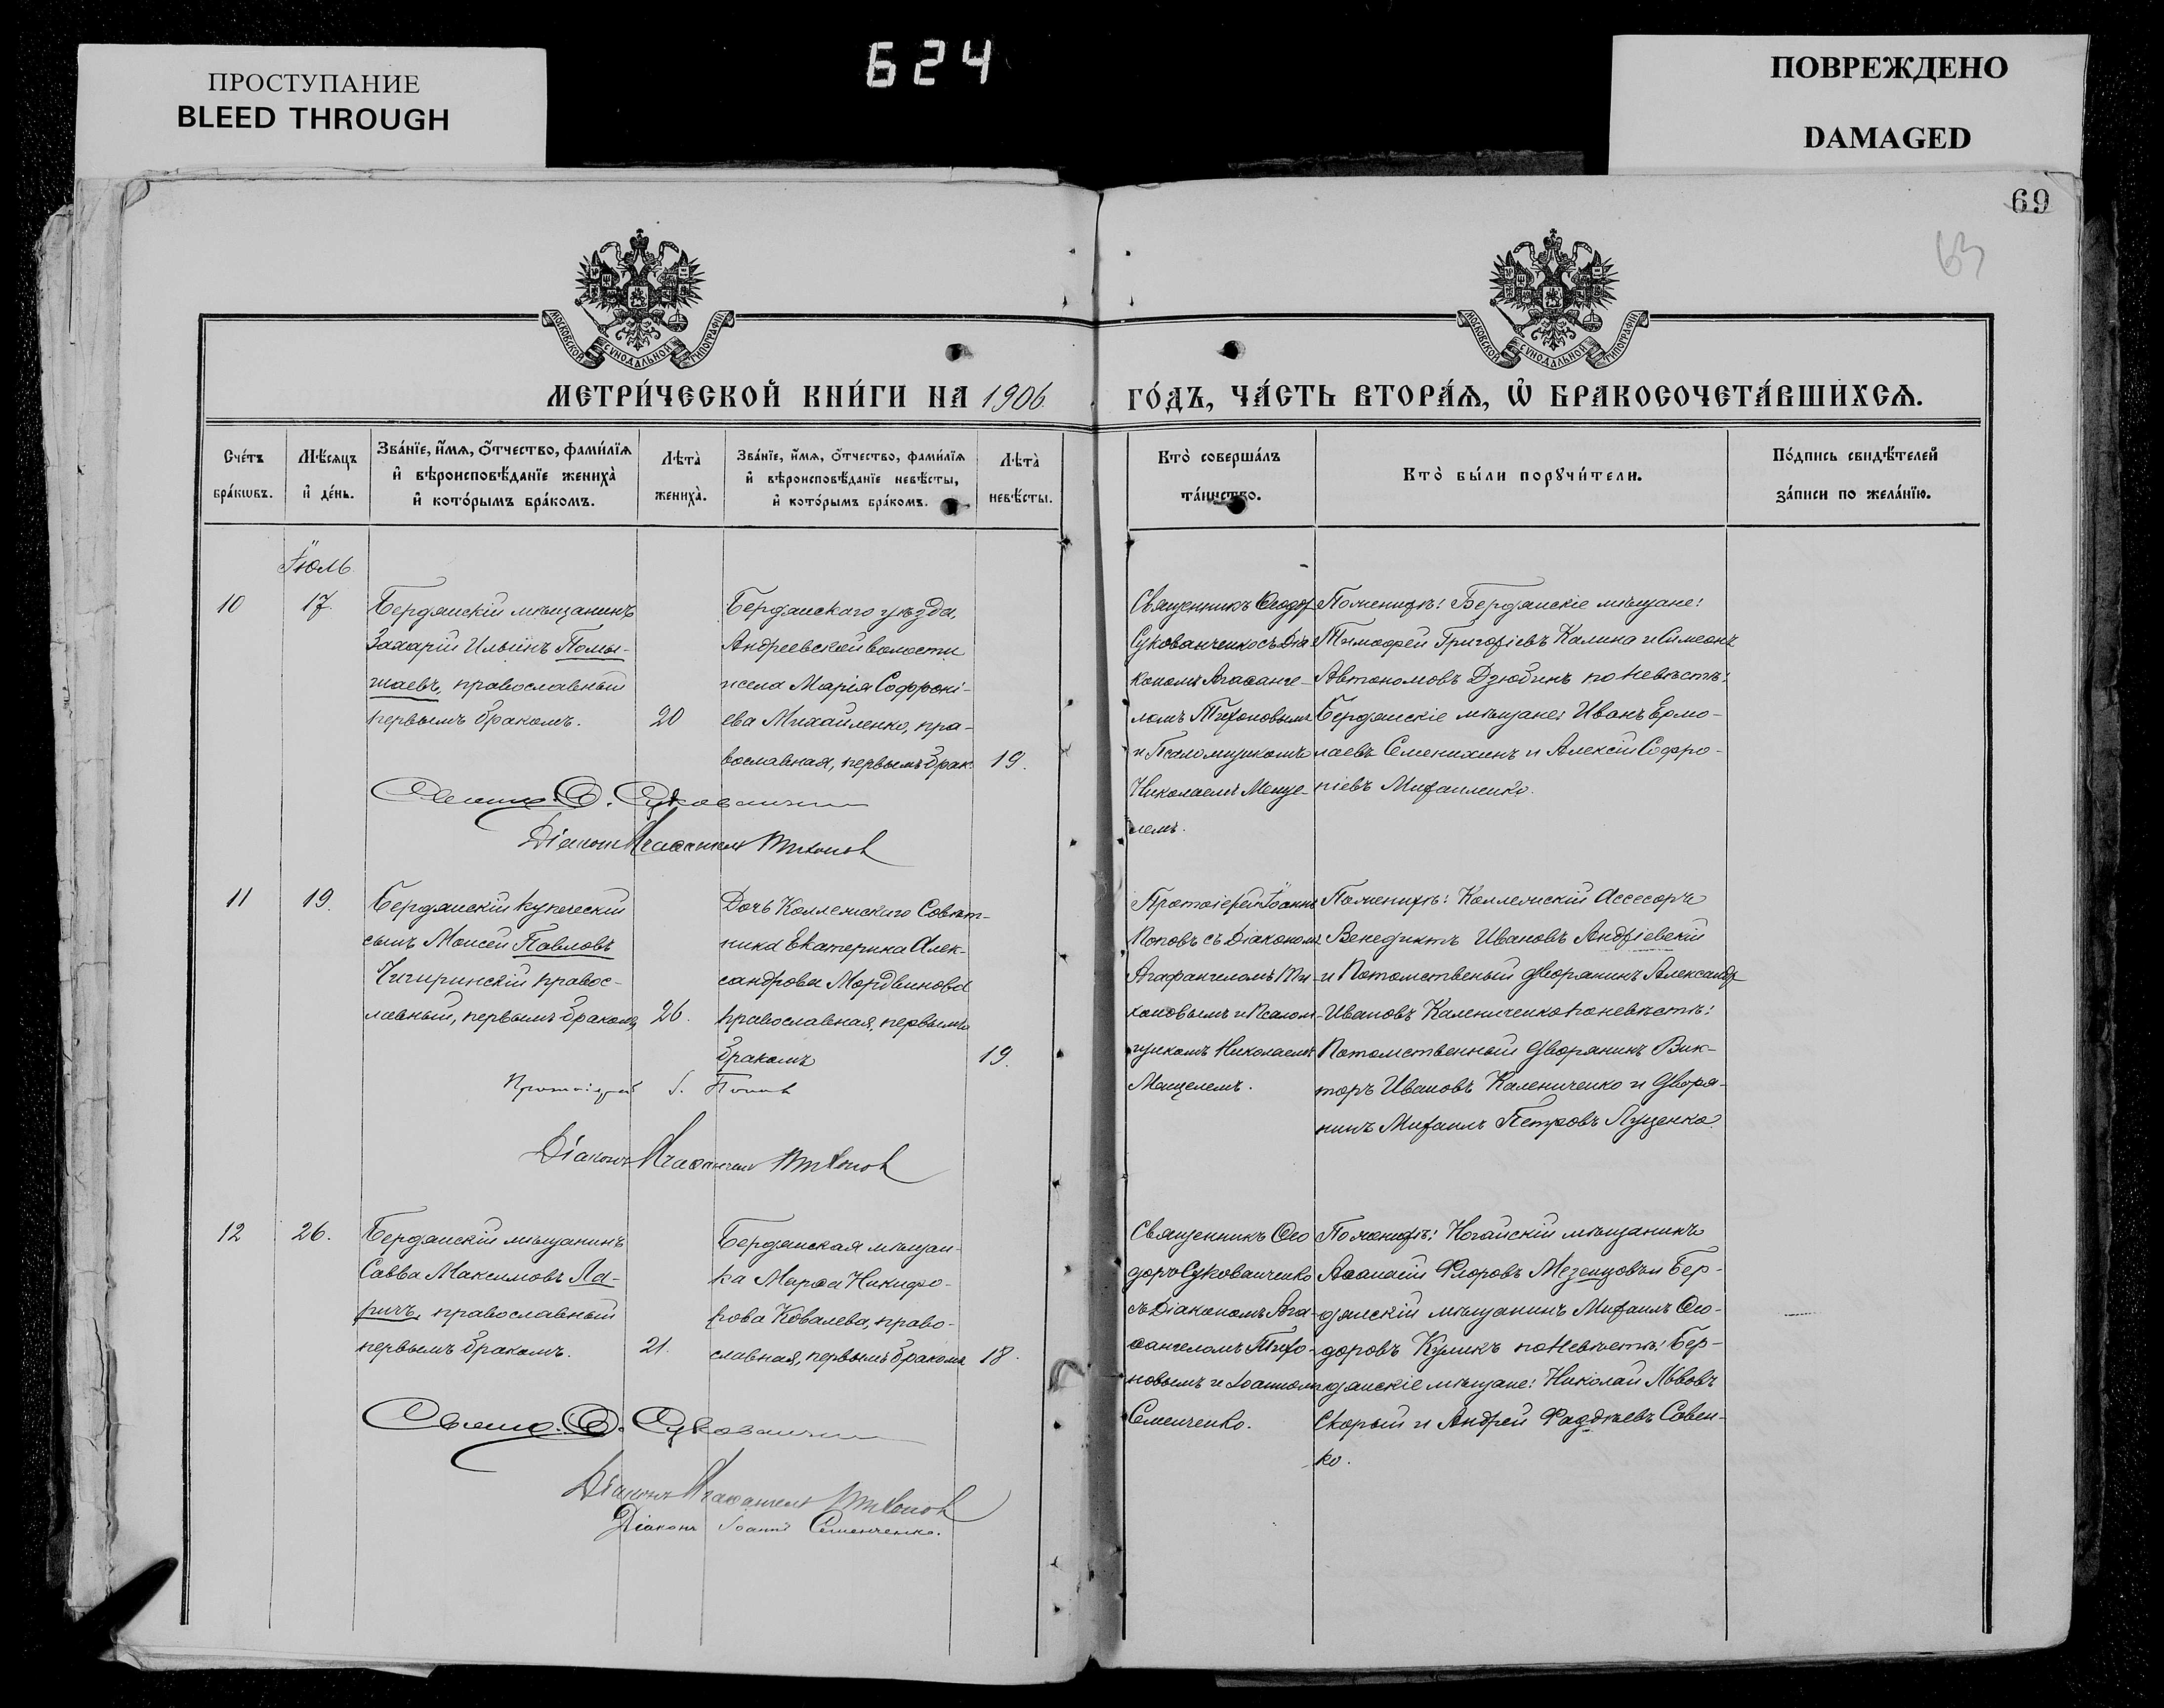 ПРОСТУПАНИЕ
BLEED THROUGH
624
ПОВРЕЖДЕНО
DAMAGED
69
63
МОСКОВСКОЙ СѴНОДАЛЬНОЙ ТИПОГРАФІИ
МОСКОВСКОЙ СѴНОДАЛЬНОЙ ТИПОГРАФІИ
МЕТРИ́ЧЕСКОЙ КНИ́ГИ НА 1906
ГО́ДЪ, ЧА́СТЬ ВТОРА́Ѧ, Ѡ҆ БРАКОСОЧЕТА́ВШИХСѦ.
Сче́тъ
бра́кѡвъ.
Мѣ́сяцъ
и҆ де́нь.
Зва́нїе, и҆́мя, ѻ҆́тчество, фами́лїя
и҆ вѣроисповѣ́данїе жениха̀
и҆ кото́рымъ бра́комъ.
Лѣта̀
жениха̀.
Зва́нїе, и҆́мя, ѻ҆́тчество, фами́лїя
и҆ вѣроисповѣ́данїе невѣ́сты,
и҆ кото́рымъ бра́комъ.
Лѣта̀
невѣ́сты.
Кто̀ соверша́лъ
та́инство.
Кто̀ бы́ли порꙋчи́тели.
По́дпись свидѣ́телей
за́писи по жела́нїю.
Іюль
10
17.
Бердянскій мѣщанинъ
Захарій Ильинъ Помы-
шаевъ, православный
первымъ бракомъ.
20
Бердянскаго уѣзда,
Андреевской волости
Марія Софроні-
ева Михайленко, пра-
вославная, первымъ брак.
19.
Священникъ Ѳеодор
Сукованченко съ Діа
кономъ Агаѳанге-
ломъ Тихоновымъ
и Псаломщикомъ
Николаемъ Маце-
лемъ.
По женихѣ: Бердянскіе мѣщане:
Тимоѳей Григоріевъ Калина и Симеонъ
Автономовъ Дзюбинъ по невѣстѣ:
Бердянскіе мѣщане: Иванъ Ермо-
лаевъ Семенихинъ и Алексій Софро-
ніевъ Михайленко.
Свящ. Ѳ. Сукованченко
Діаконъ Агаѳангелъ Тихоновъ
11
19.
Бердянскій купеческій
сынъ Моисей Павловъ
Чигиринскій правос-
лавный, первымъ бракомъ,
26.
Дочь Коллежскаго Совѣт-
ника Екатерина Алек-
сандрова Мордвинова
православная, первымъ
бракомъ
19.
Протоіерей Іоаннъ
Поповъ съ Діакономъ
Агафангеломъ Ти-
хоновымъ и Псалом-
щикомъ Николаемъ
Мацелемъ.
По женихѣ: Коллежскій Ассесоръ
Венедиктъ Ивановъ Андріевскій
и Потомственый дворянинъ Александр
Ивановъ Калениченко по невѣстѣ:
Потомственный дворянинъ Вик-
торъ Ивановъ Калениченко и дворя-
нинъ Михаилъ Петровъ Луценко
Протоіерей І. Поповъ
Діаконъ Агаѳангелъ Тихоновъ
12
26.
Бердянскій мѣщанинъ
Савва Максимовъ Ла-
ричъ, православный
первымъ бракомъ.
21.
Бердянская мѣщан-
ка Марѳа Никифо-
рова Ковалева, право-
славная, первымъ бракомъ
18.
Священникъ Ѳео
доръ Сукованченко
съ Діакономъ Ага-
ѳангеломъ Тихо-
новымъ и Іоанномъ
Семенченко.
По женихѣ: Ногайскій мѣщанинъ
Аѳанасій Флоровъ Мезенцовъ и Бер-
дянскій мѣщанинъ Михаилъ Ѳео-
доровъ Куликъ по невѣстѣ: Бер-
дянскіе мѣщане: Николай Львовъ
Скорый и Андрей Фаддѣевъ Савен-
ко.
Свящ. Ѳ. Сукованченко
Діаконъ Агаѳангелъ Тихоновъ
Діаконъ Іоаннъ Семенченко.